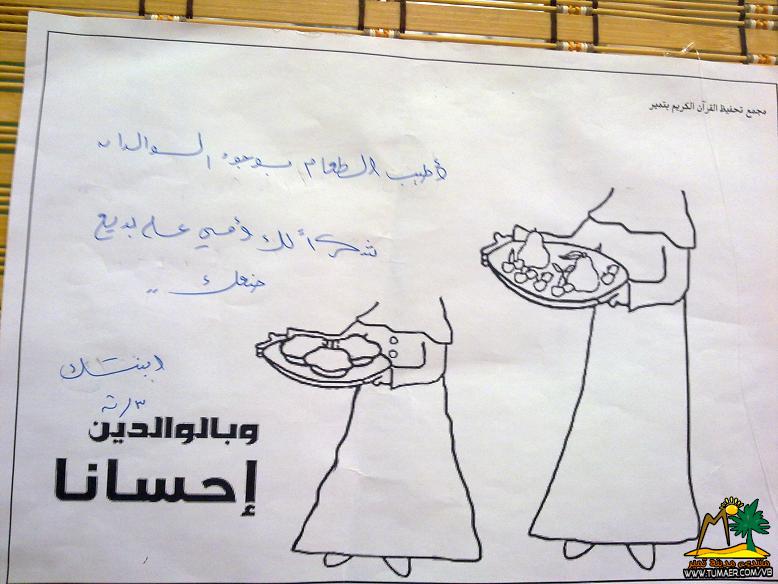 مجمع تحفيظ القرآن الكريم بتمير
أطيب الطعام بوجود الوالدان
شكراً لك أمي على بديع
صنعك ..
ابنتك
وبالوالدين
إحسانا
منتدى مدينة تمير
WWW.TUMAER.COM/VB